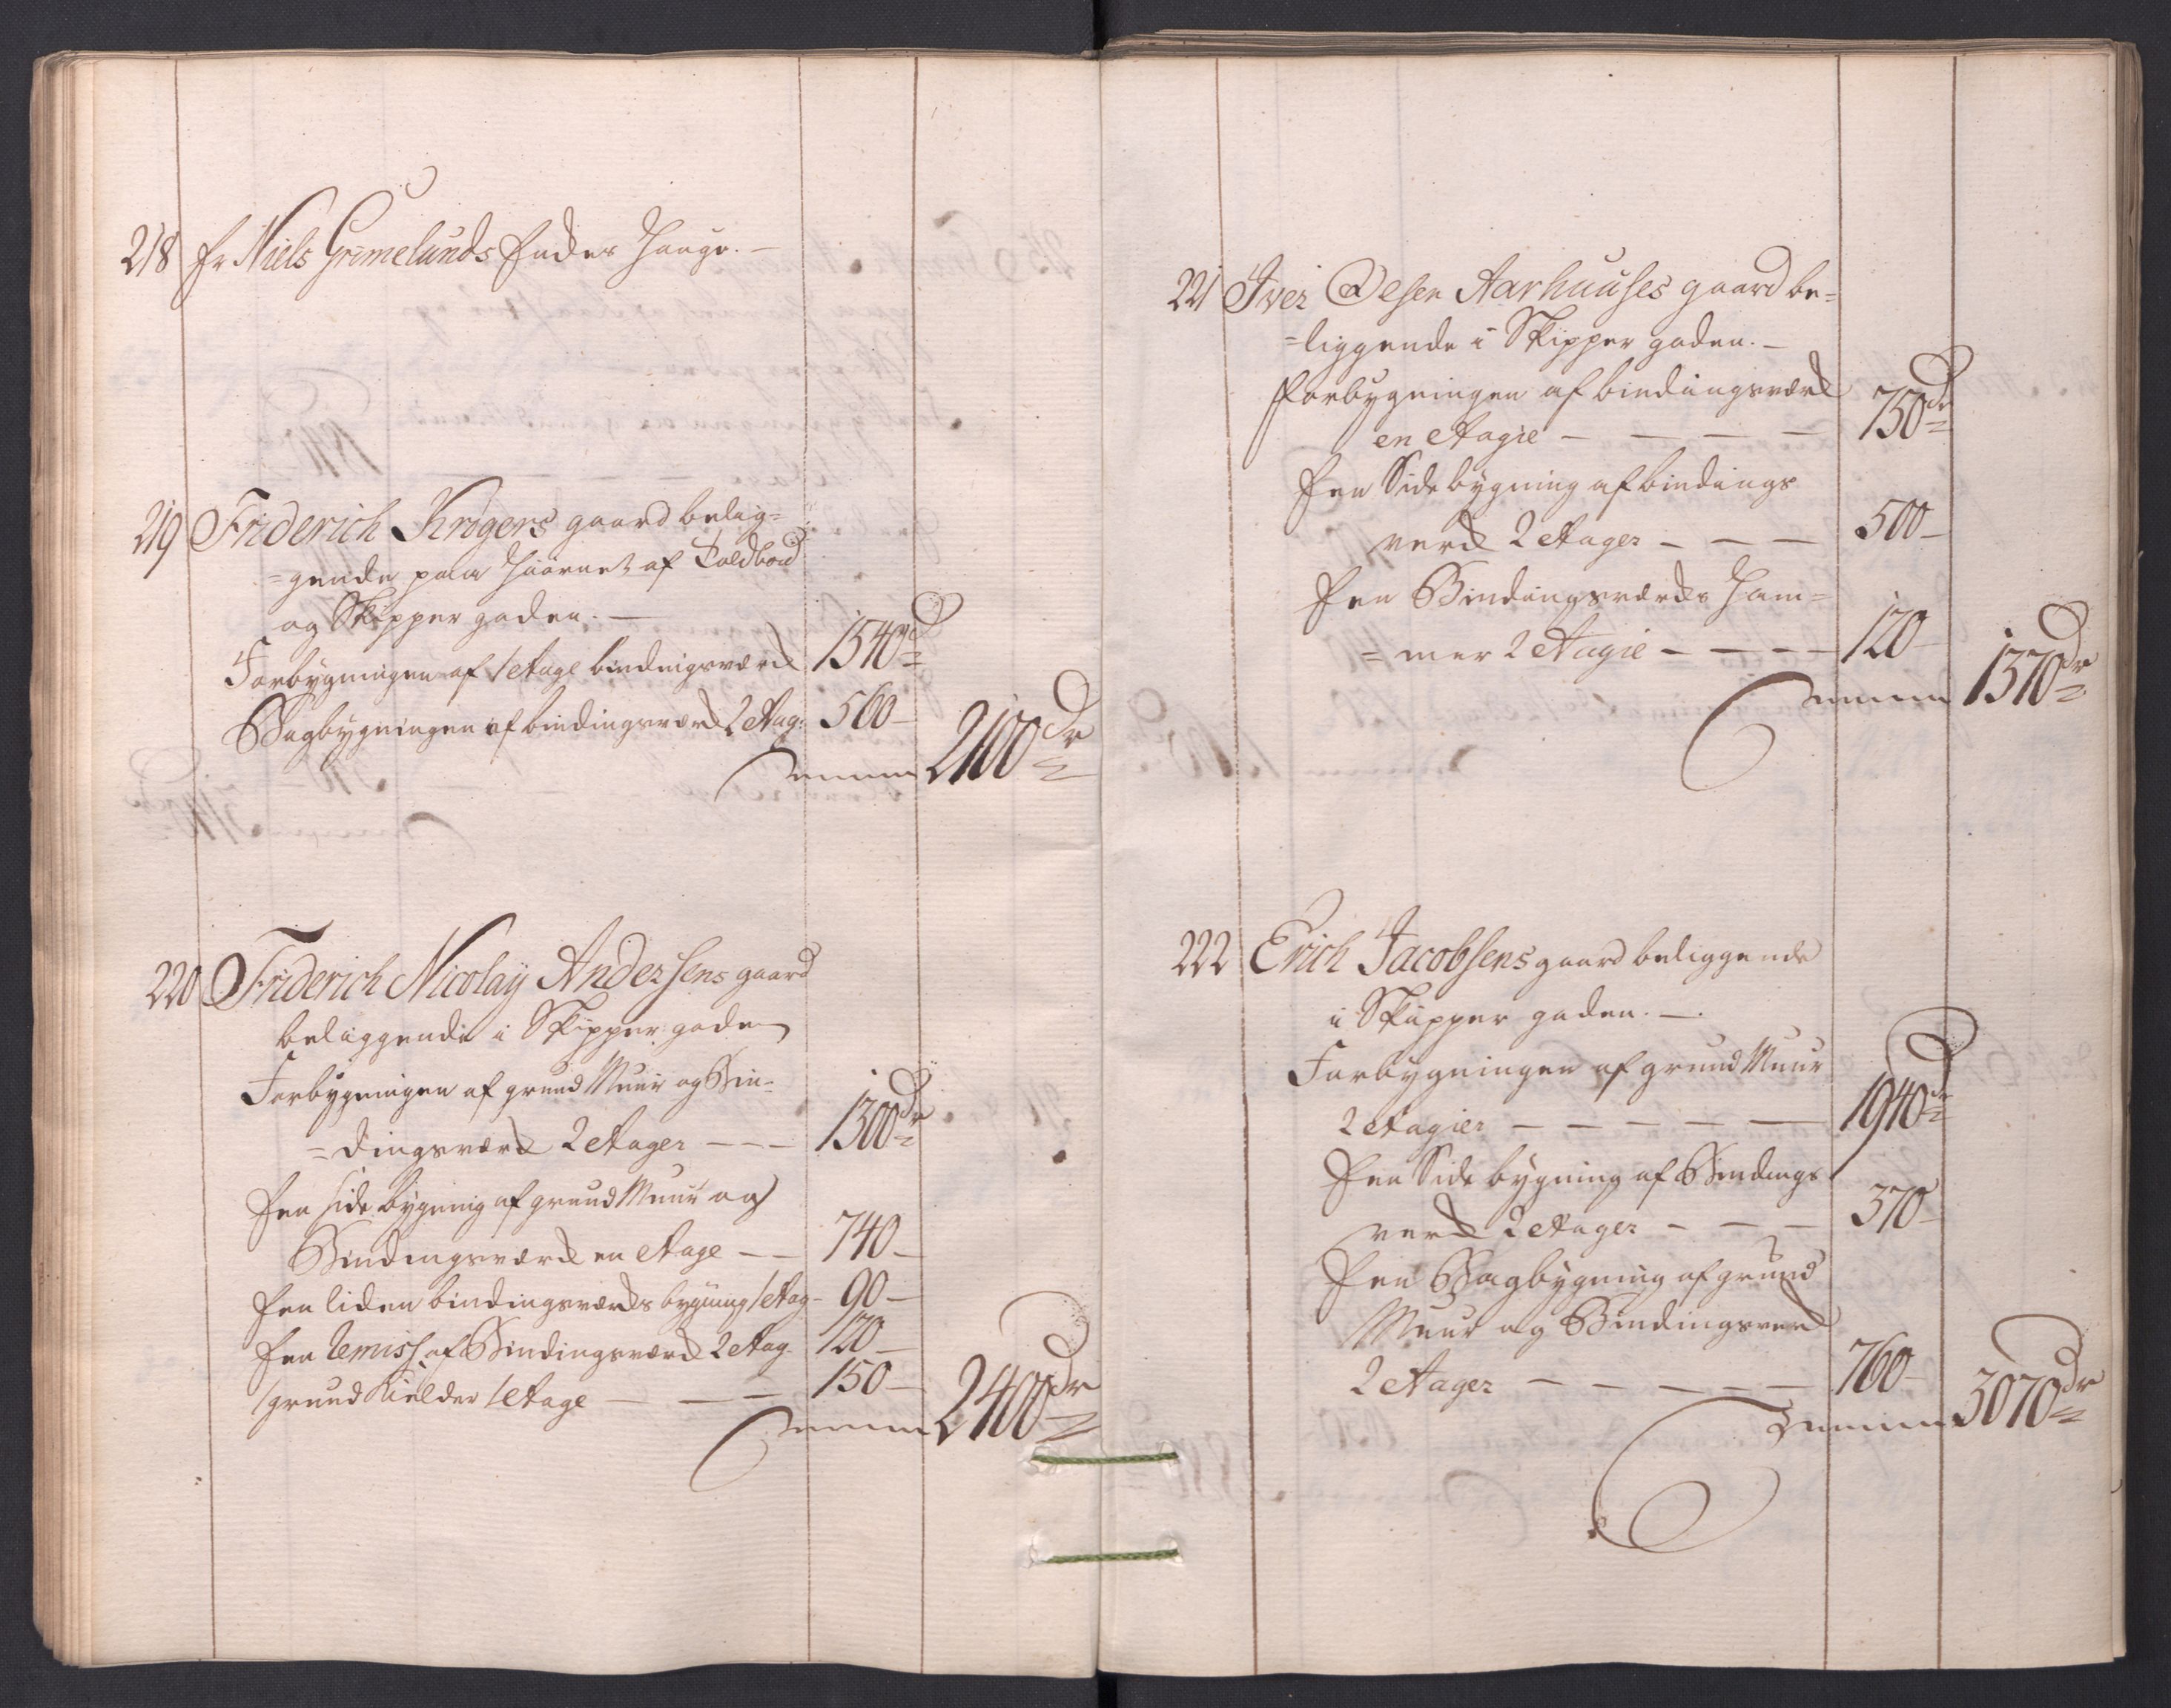 218 Hr Niels Grimelunds Enckes Hauge. —
219 Friderich Krögers gaard belig=
=gende paa Hiörnet af Toldbod
og Skipper gaden. —
Forbygningen af 1 etage bindingsverck 1540 rdr
Bagbygningen af bindingsverck 2 etag: 560 —
Summa 2100 dr
220 Friderich Nicolaÿ Andersens gaard
beliggende i Skipper gaden
Forbygningen af grund Muur og Bin-
=dingsverck 2 etager — — — 1300 dr
Een side bygning af grund Muur og
Bindingsverck en etage — — 740 —
Een liden bindingsvercks bygning 1 etag - 90 —
Een Remiss af Bindingsverck 2 etag - 120 —
1 grund Kielder 1 etage — — — 150 —
Summa 2400 dr
221 Iver Olsen Aarhuuses gaard be=
=liggende i Skipper gaden. —
Forbygningen af bindingsverck
en etagie — — — — 750 dr
Een Side bygning af bindings
verck 2 etager — — — 500 —
Een Bindingsvercks Ham=
=mer 2 etagie — — — — 120 —
Summa 1370 dr
222 Erich Jacobsens gaard beliggende
i Skipper gaden. —
Forbygningen af grund Muur
2 etagier — — — — — 1940 dr
Een Side bygning af Bindings
verck 2 etager — — — 370 —
Een Bagbygning af grund
Muur og Bindingsverck
2 etager — — — — — 760 —
Summa 3070 dr